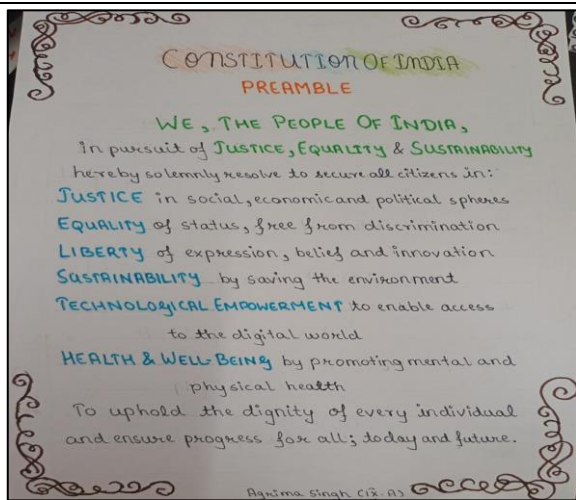 CONSTITUTION OF INDIA
PREAMBLE
WE, THE PEOPLE OF INDIA,
in pursuit of JUSTICE, EQUALITY & SUSTAINABILITY
hereby solemnly resolve to secure all citizens in:
JUSTICE in social, economic and political spheres
EQUALITY of status, free from discrimination
LIBERTY of expression, belief and innovation
SUSTAINABILITY by saving the environment
TECHNOLOGICAL EMPOWERMENT to enable access
to the digital world
HEALTH & WELL-BEING by promoting mental and
physical health
To uphold the dignity of every individual
and ensure progress for all; today and future.
Agrima Singh (IX-A)